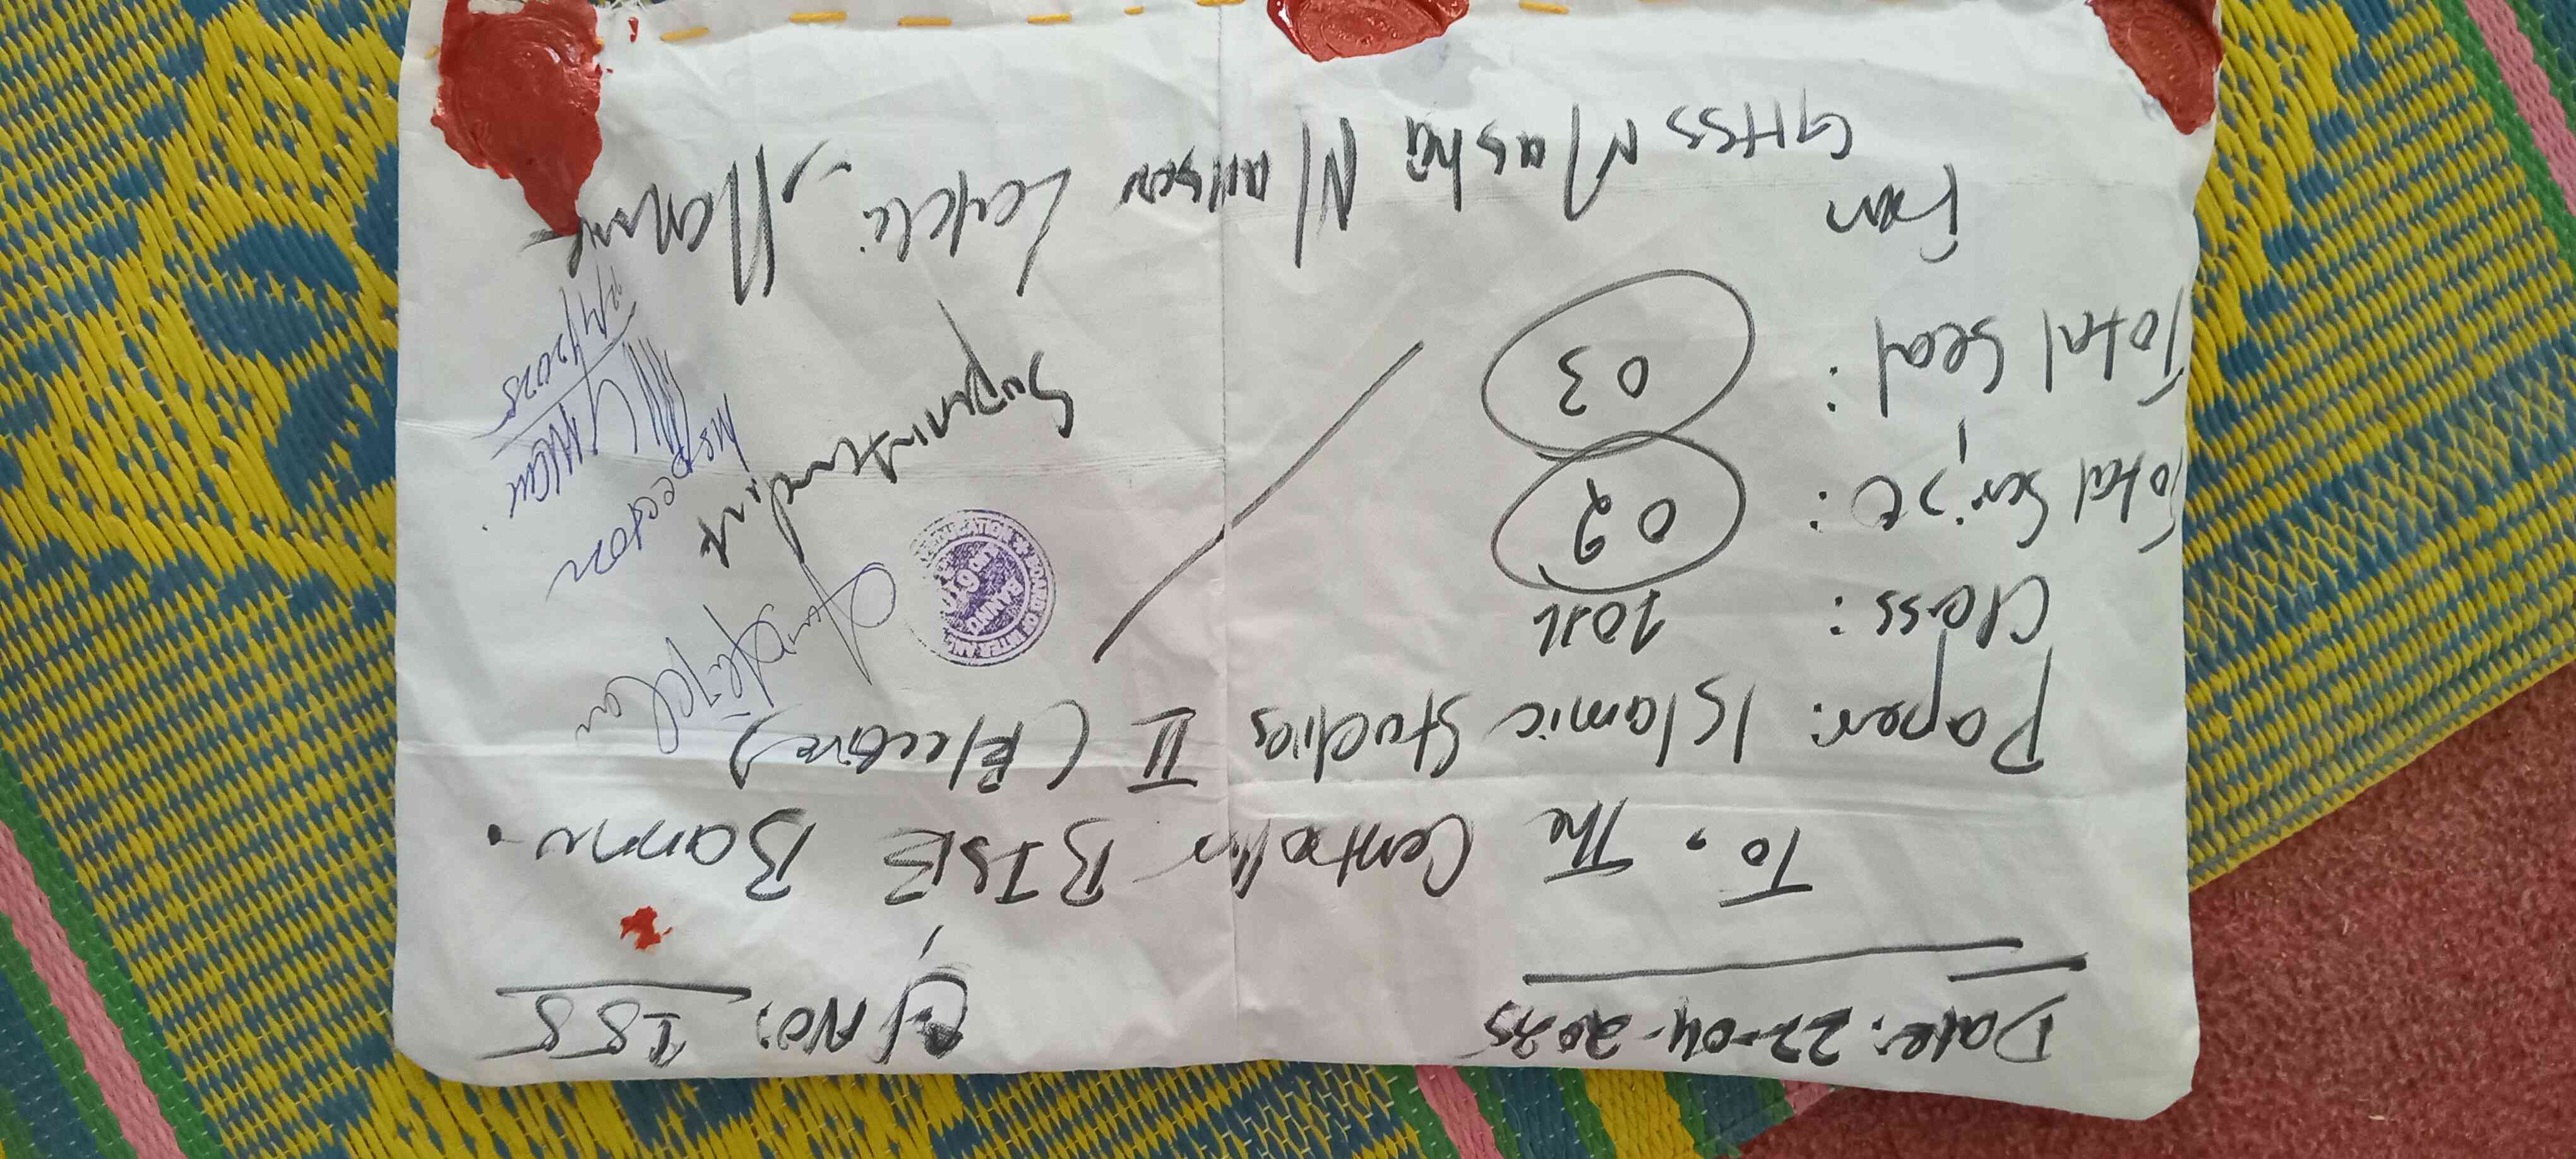 Date: 22-04-2025 C/No: 155
To, The Controller BISE Bannu.
Paper: Islamic Studies II (Elective)
Class: 10th
Total Script: 02
Total Seal: 03
BANNU
Superintendent
Inspector
From
GHSS Masha Mansoor Lakki Marwat